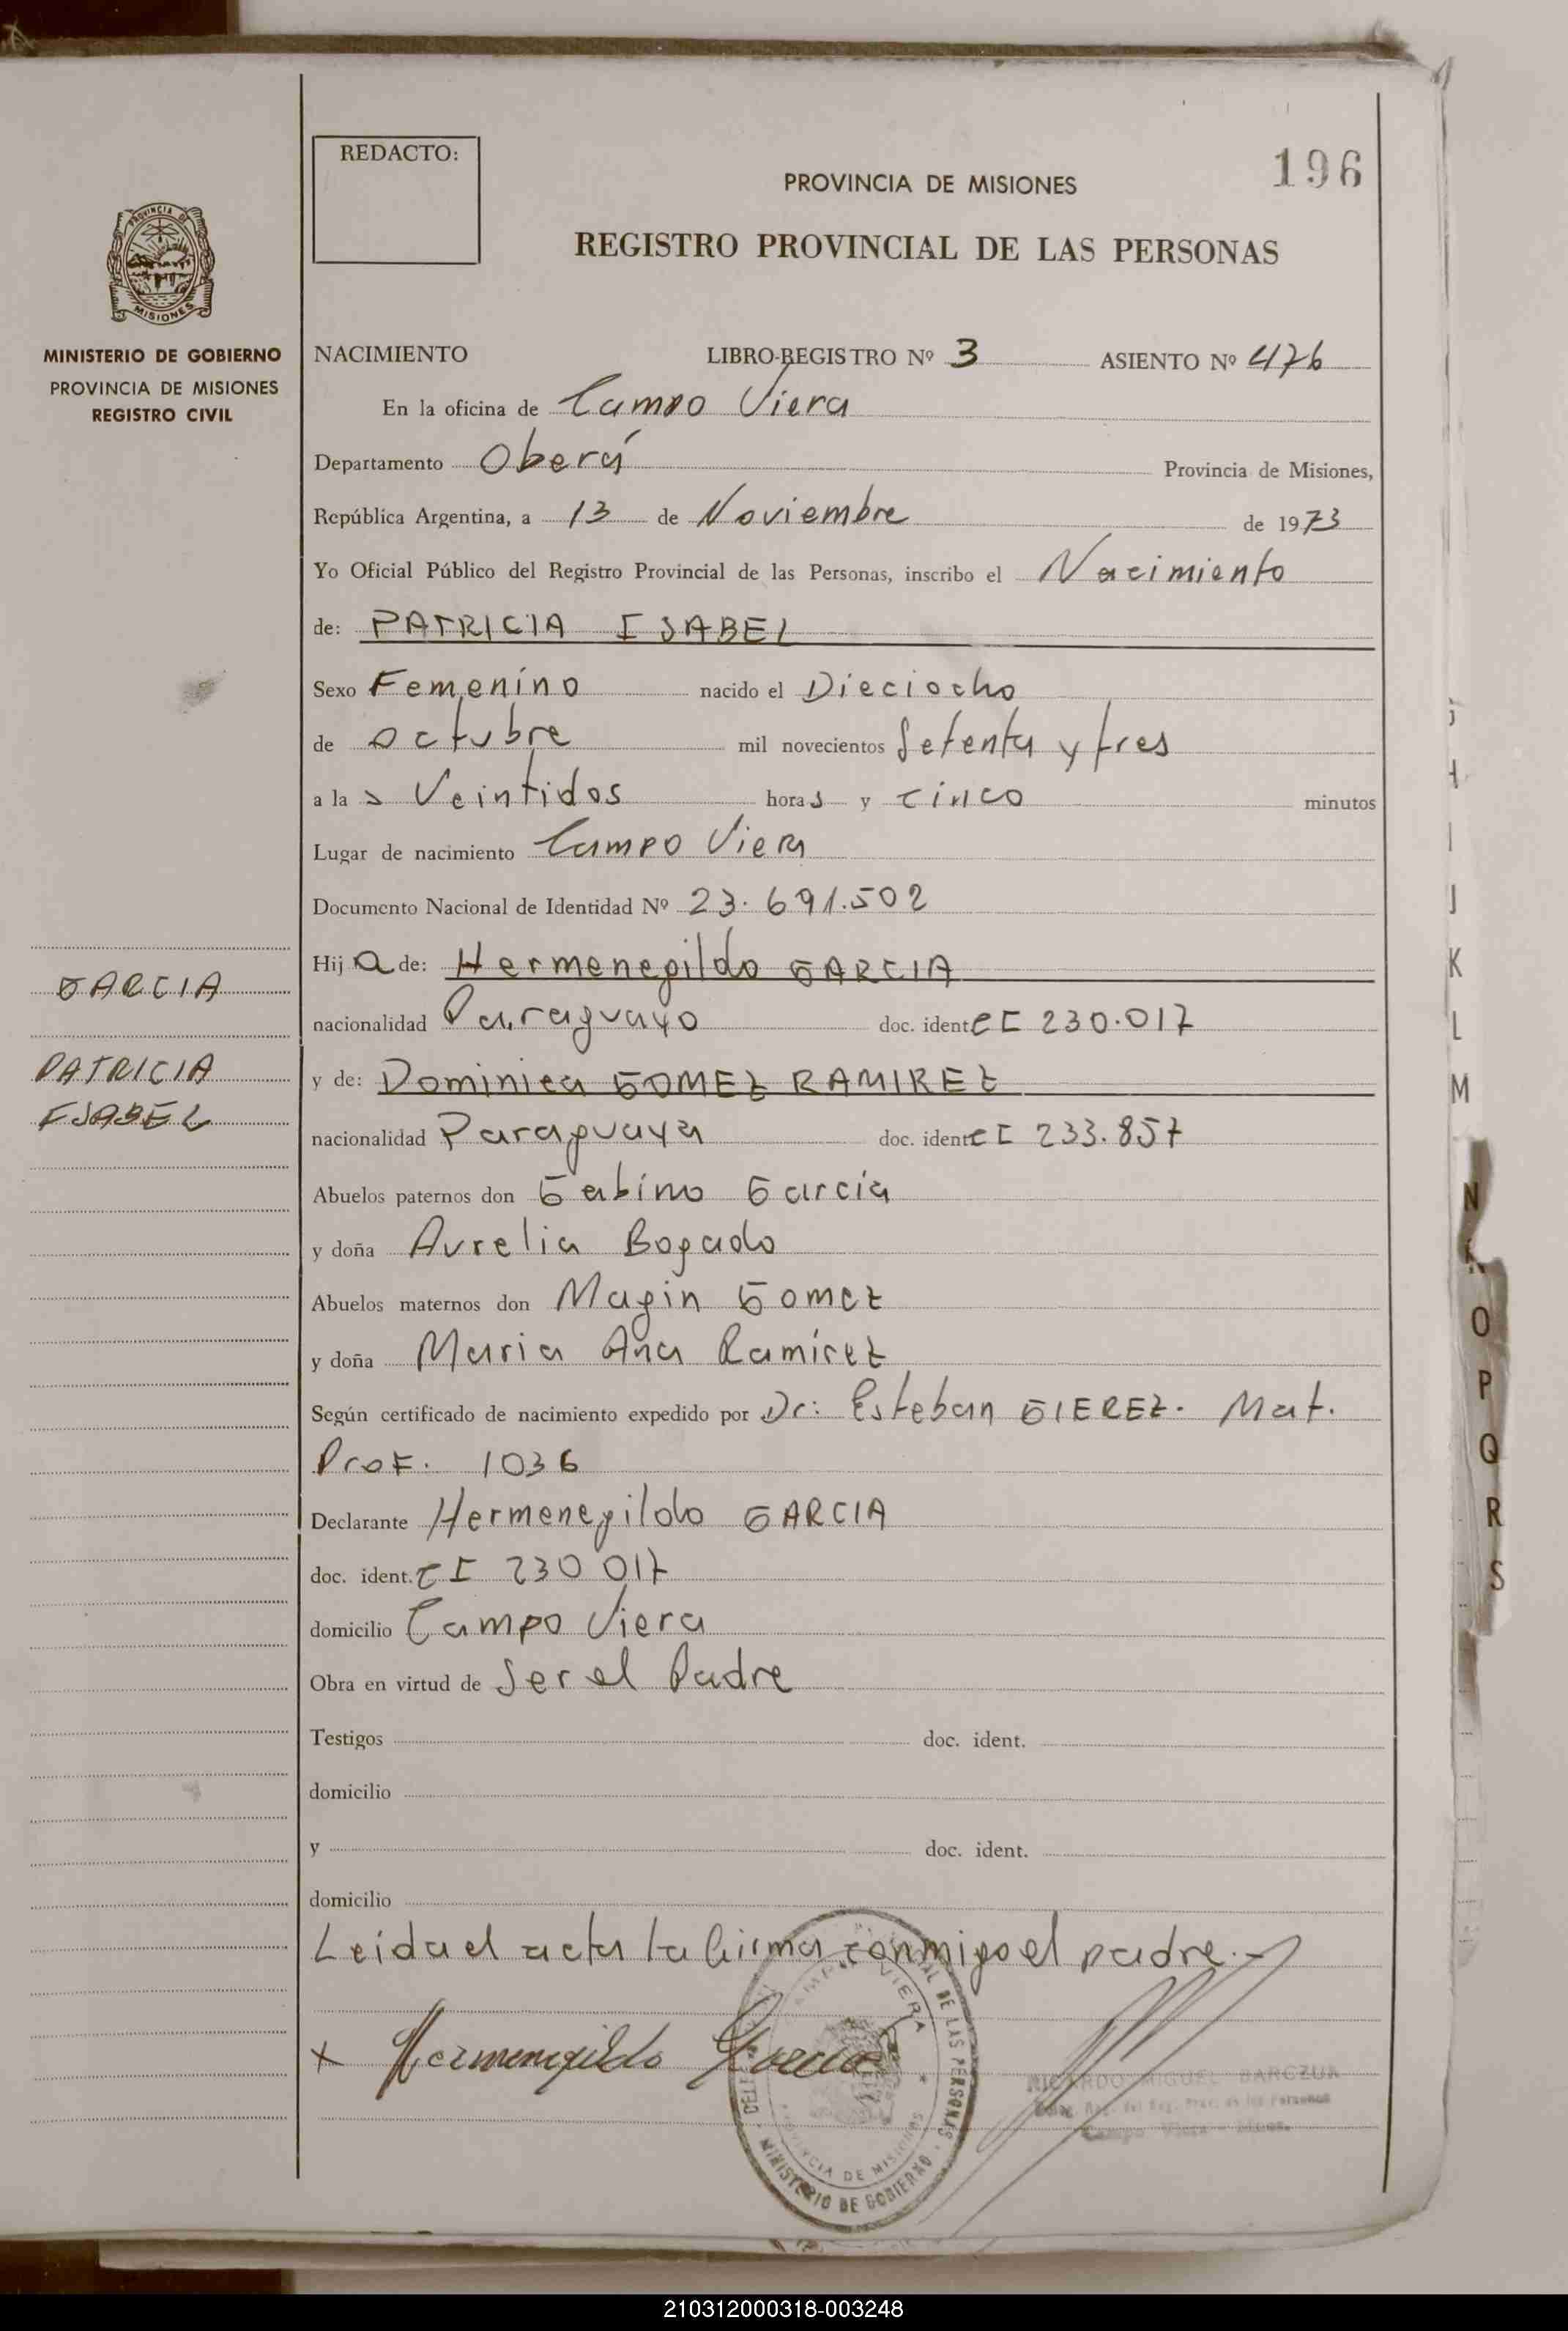 REDACTO:
196
PROVINCIA DE MISIONES
REGISTRO PROVINCIAL DE LAS PERSONAS
PROVINCIA DE
MISIONES
MINISTERIO DE GOBIERNO
PROVINCIA DE MISIONES
REGISTRO CIVIL
NACIMIENTO LIBRO-REGISTRO Nº 3 ASIENTO Nº 476
En la oficina de Campo Viera
Departamento Oberá Provincia de Misiones,
República Argentina, a 13 de Noviembre de 1973
Yo Oficial Público del Registro Provincial de las Personas, inscribo el Nacimiento
de: PATRICIA ISABEL
Sexo Femenino nacido el Dieciocho
de octubre mil novecientos Setenta y tres
a la s Veintidos hora s y cinco minutos
Lugar de nacimiento Campo Viera
Documento Nacional de Identidad Nº 23.691.502
Hij a de: Hermenegildo GARCIA
GARCIA
nacionalidad Paraguayo doc. ident CI 230.017
PATRICIA
ISABEL
y de: Dominica GOMEZ RAMIREZ
nacionalidad Paraguaya doc. ident CI 233.857
Abuelos paternos don Gabino Garcia
y doña Aurelia Bogado
Abuelos maternos don Magin Gomez
y doña Maria Ana Ramírez
Según certificado de nacimiento expedido por Dr: Esteban GIEREZ. Mat.
Prof. 1036
Declarante Hermenegildo GARCIA
doc. ident. CI 230 017
domicilio Campo Viera
Obra en virtud de Ser el Padre
Testigos doc. ident.
domicilio
y doc. ident.
domicilio
Leida el acta la firma conmigo el padre.-
x Hermenegildo Garcia
VIERA
DE LAS PERSONAS
PROVINCIA DE MISIONES
MINISTERIO DE GOBIERNO
RICARDO MIGUEL BARCZUK
Reg. del Reg. Prov. de las Personas
Campo Viera - Mnes.
H
I
J
K
L
M
N
O
P
Q
R
S
210312000318-003248